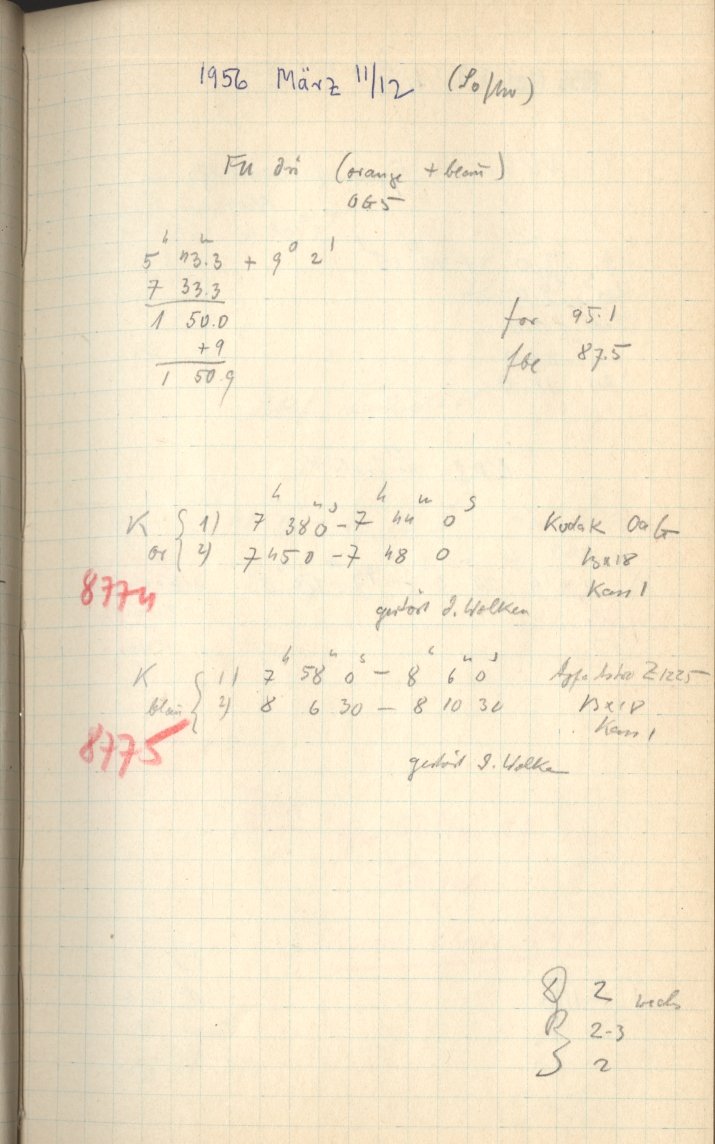 1956 März 11/12 (So/Mo)
FU Ori (orange + blau)
OG5
5 h 43.3 m + 9° 2'
7 33.3
1 50.0
+9
1 50.9
for 95.1
fbl 87.5
K or { 1) 7 h 38 m 0 s - 7 h 44 m 0 s Kodak OaG
2) 7 45 0 - 7 48 0 13x18
Kass 1
8774
gestört d. Wolken
K blau { 1) 7 h 58 m 0 s - 8 h 6 m 0 s Agfa Astro Z1225
2) 8 6 30 - 8 10 30 13x18
Kass 1
8775
gestört d. Wolken
D 2 wechs
R 2-3
S 2